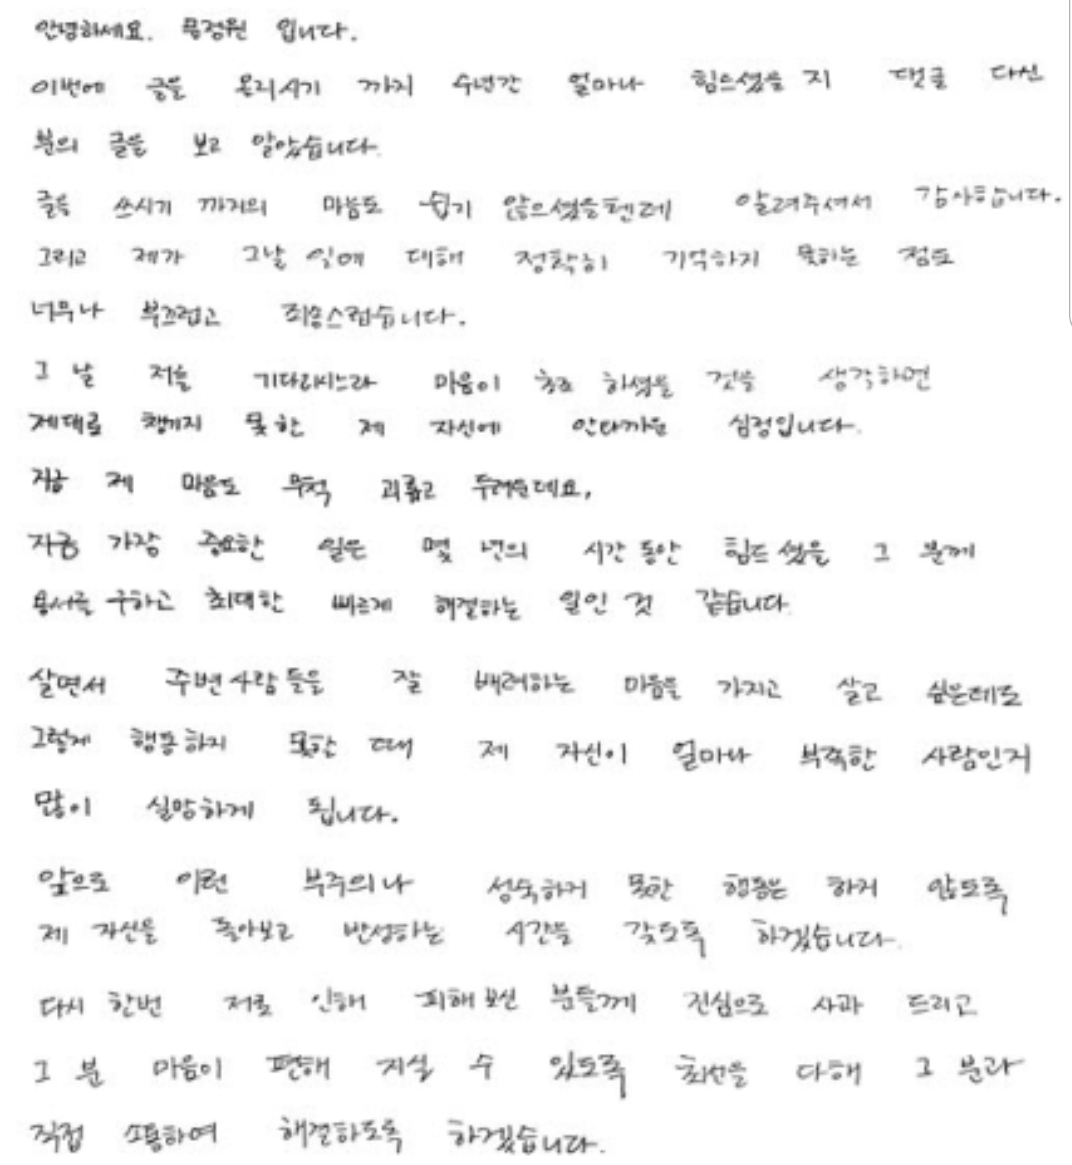 안녕하세요. 풍정원 입니다.
이번에 글을 올리시기 까지 수년간 얼마나 힘드셨을 지 댓글 다신
분의 글을 보고 알았습니다.
글을 쓰시기 까지의 마음도 쉽지 않으셨을텐데 알려주셔서 감사합니다.
그리고 제가 그날 일에 대해 정확히 기억하지 못하는 점도
너무나 부끄럽고 죄송스럽습니다.
그 날 저를 기다리시느라 마음이 초조 하셨을 것을 생각하면
제대로 챙기지 못 한 제 자신에 안타까운 심정입니다.
지금 제 마음도 무척 괴롭고 두려운데요,
지금 가장 중요한 일은 몇 년의 시간 동안 힘드셨을 그 분께
용서를 구하고 최대한 빠르게 해결하는 일인 것 같습니다.
살면서 주변 사람 들을 잘 배려하는 마음을 가지고 살고 싶은데도
그렇게 행동 하지 못한 때 제 자신이 얼마나 부족한 사람인지
많이 실망하게 됩니다.
앞으로 이런 부주의나 성숙하지 못한 행동은 하지 않도록
제 자신을 돌아보고 반성하는 시간을 갖도록 하겠습니다.
다시 한번 저로 인해 피해 보신 분들께 진심으로 사과 드리고
그 분 마음이 편해 지실 수 있도록 최선을 다해 그 분과
직접 소통하여 해결하도록 하겠습니다.